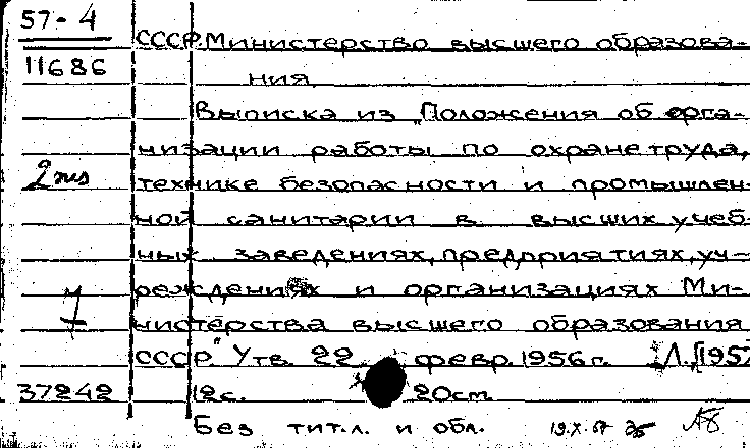 57-4
11686
СССР. Министерство высшего образова-
ния.
Выписка из "Положения об орга-
низации работы по охране труда,
2
технике безопасности и промышлен-
ной санитарии в высших учеб-
ных заведениях, предприятиях, уч-
реждениях и организациях Ми-
7
нистерства высшего образования
СССР." Утв. 22 февр. 1956г. Л. 195
37242
12с. 20см.
Без тит.л. и обл. 19.X.57